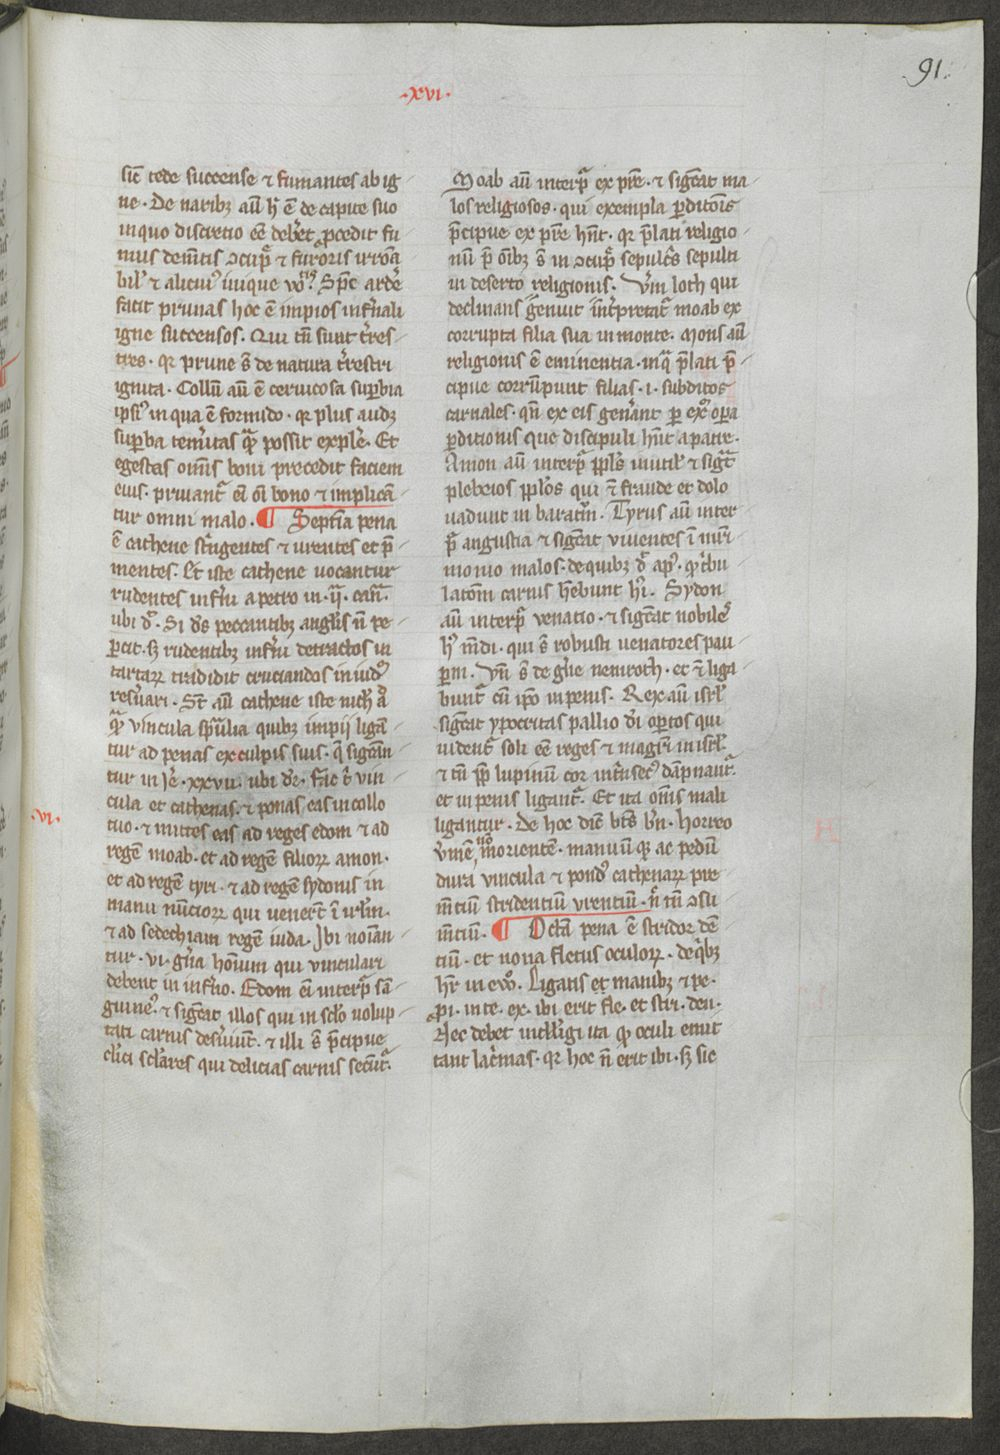 91.
.xvi.
sic̄ tede succense ⁊ fumantes ab ig
ne. De naribꝫ aūt h̄ ē de capite suo
in quo discretio eē debꝫet ꝓcedit fu
mus dem̄tis ꝯcup̄ ⁊ furoris irroā
facit prunas hoc ē impios inf̄nali
igne succensos. Qui tn̄ sunt t̄res
tres. qꝛ prune s̄ de natura t̄restri
ignita. Collū aūt ē ceruicosa suꝑbia
ip̄ius in qua ē formido. qꝛ plus audꝫ
suꝑba tem̄itas qͣ possit explē. Et
egestas omīs boni precedit faciem
eius. priuant᷑ em̄ oī bono ⁊ implicā
tur omni malo. ¶ Septīa pena
ē cathene st̄ngentes ⁊ urentes et p̄
mentes. Et iste cathene uocantur
rudentes inf̄ni a petro in .ij. can̄.
ubi dꝛ. Si d̄s peccantibꝫ angl̓is n̄ pe
ꝑcit. sꝫ rudentibꝫ inf̄ni detractos in
tartarꝝ tradidit cruciandos in iudꝫ
res̄uari. St̄ aūt cathene iste nich̓ a
qͣ vincula sp̄ualia quibꝫ impii ligā
tur ad penas ex culpis suis. q̄ sigt̄an
tur in Je᷑. xxvij. ubi dꝛ. Fac t̄ vin
cula et cathenas. ⁊ ponas eas in collo
tuo. ⁊ mittes eas ad reges edom ⁊ ad
.vi.
regē moab. et ad regē filiorꝝ amon.
et ad regē tyri. ⁊ ad regē sydonis in
manu nūciorꝝ qui venert̄ ī irl̓m.
⁊ ad sedechiam regē iuda. Ibi noīan
tur .vi. gn̄a hoīum qui vinculari
debent in inf̄no. Edom em̄ interp̄ san
guineꝰ. ⁊ sigt̄at illos qui in sc̄lo uolup
tati carnis des̄uiūt. ⁊ illi s̄ p̄cipue
cl̓ici sc̄lares qui delicias carnis sectūt᷑.
Moab aūt interp̄ ex pr̄e. ⁊ sigt̄at ma
los religiosos. qui exempla ꝑditōnis
p̄cipue ex pr̄e hn̄t. qꝛ p̄lati religio
nū p̄ oībꝫ s̄ in ꝯcup̄ sepulc̄s sepulti
in deserto religionis. Vn̄ loth qui
declinans genuit int̄pretat᷑ moab ex
corrupta filia sua in monte. Mons aūt
religionis ē eminentia. in qͣ p̄lati p̄
cipue corrūpunt filias .i. subditos
carnales. qn̄ ex eis gen̄ant ꝑ exꝰ opa
ꝑditionis que discipuli hn̄t a patre.
Amon aūt interp̄ ppl̓s inutil̓ ⁊ sigt̄
plebeios ppl̓os qui ī fraude et dolo
uadunt in baratꝛm. Tyrus aūt inter
p̄ angustia ⁊ sigt̄at viuentes ī mr̄i
monio malos. de quibꝫ dꝛ apꝰ. qꝛ t̄bu
latōm carnis hēbunt hꝰi. Sydon
aūt interp̄ venatio. ⁊ sigt̄at nobiles
hꝰ mūdi. qui s̄ robusti uenatores pau
ꝑm. Vn̄ s̄ de gn̄e nemroth. et ī liga
bunt᷑ cū ip̄o in penis. Rex aūt isrl̓
sigt̄at ypocritas pallio dei oꝑtos qui
uident᷑ soli eē reges ⁊ magr̄i in isrl̓.
⁊ tn̄ ꝓp̄ lupinū cor int̄nsecꝰ dāpnant᷑.
et in penis ligant᷑. Et ita omīs mali
ligantur. De hoc dic̄ bt̄s b̄n. Horreo
v̄mē morientē. manuū qꝫ ac pedū
dura vincula ⁊ pondꝰ cathenarꝝ pre
mt̄ium stridentium vrentium. ꝯsu
mt̄ium. ¶ Octā pena ē stridor dē
tiū. et noua fletus oculorꝝ. de qͥbꝫ
hꝛ in euō. Ligatis et manibꝫ ⁊ pe.
ꝓi. in te. ex. ibi erit fle. et stri. den.
Hec debet intell̓igi ita qꝫ oculi emit
tant lac̄mas. qꝛ hoc n̄ erit ibi. sꝫ sic